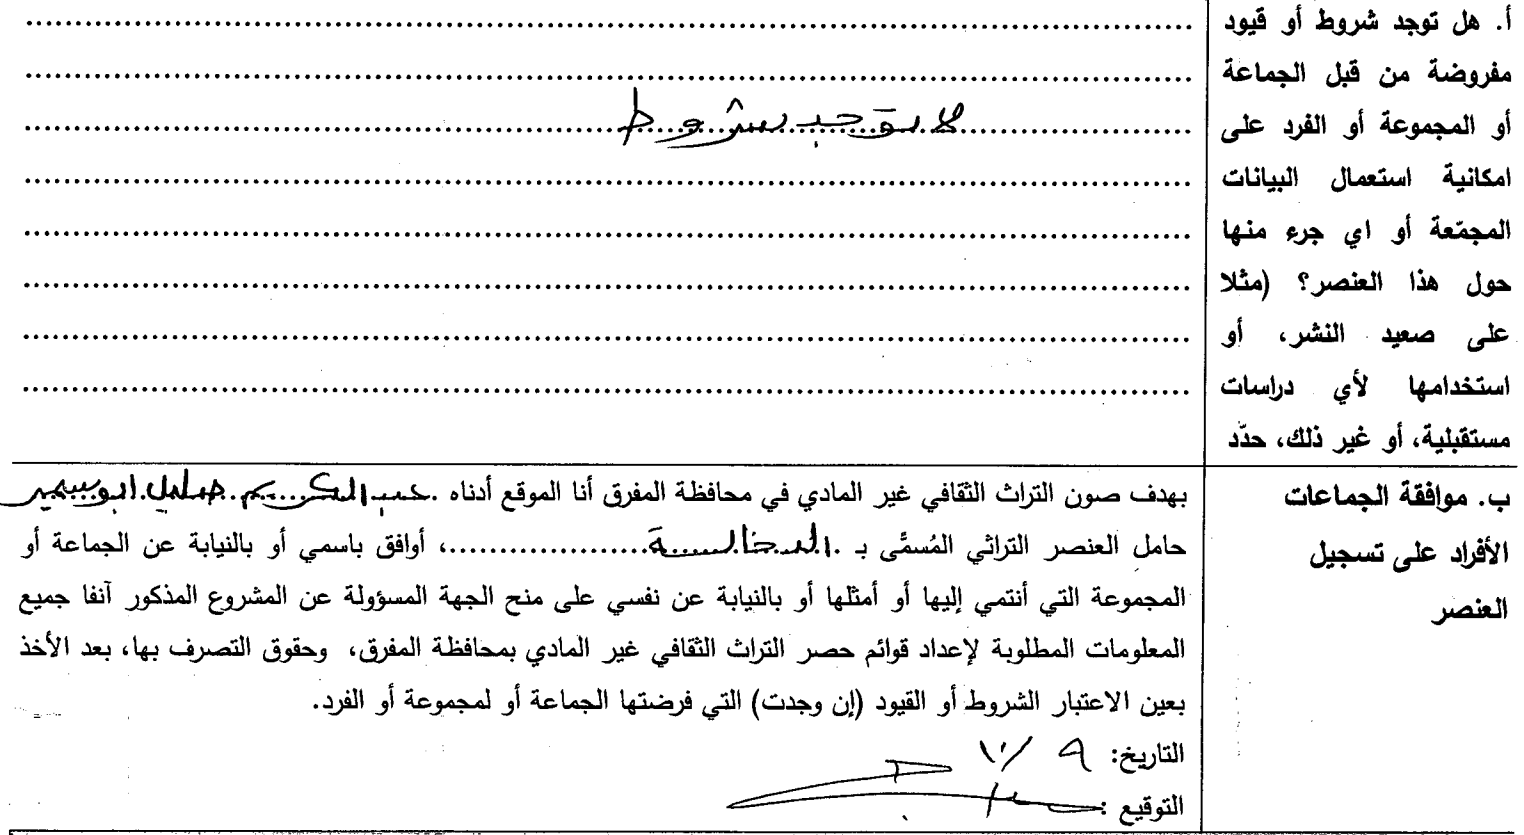 أ. هل توجد شروط أو قيود
مفروضة من قبل الجماعة
أو المجموعة أو الفرد على
امكانية استعمال البيانات
المجمّعة أو اي جرء منها
حول هذا العنصر؟ (مثلا
على صعيد النشر، أو
استخدامها لأي دراسات
مستقبلية، أو غير ذلك، حدّد
لا يوجد شروط
ب. موافقة الجماعات
الأفراد على تسجيل
العنصر
بهدف صون التراث الثقافي غير المادي في محافظة المفرق أنا الموقع أدناه عبد الكريم
حامل العنصر التراثي المُسمَّى بـ ......، أوافق باسمي أو بالنيابة عن الجماعة أو
المجموعة التي أنتمي إليها أو أمثلها أو بالنيابة عن نفسي على منح الجهة المسؤولة عن المشروع المذكور آنفا جميع
المعلومات المطلوبة لإعداد قوائم حصر التراث الثقافي غير المادي بمحافظة المفرق، وحقوق التصرف بها، بعد الأخذ
بعين الاعتبار الشروط أو القيود (إن وجدت) التي فرضتها الجماعة أو لمجموعة أو الفرد.
التاريخ: ٩ / ١٠
التوقيع :